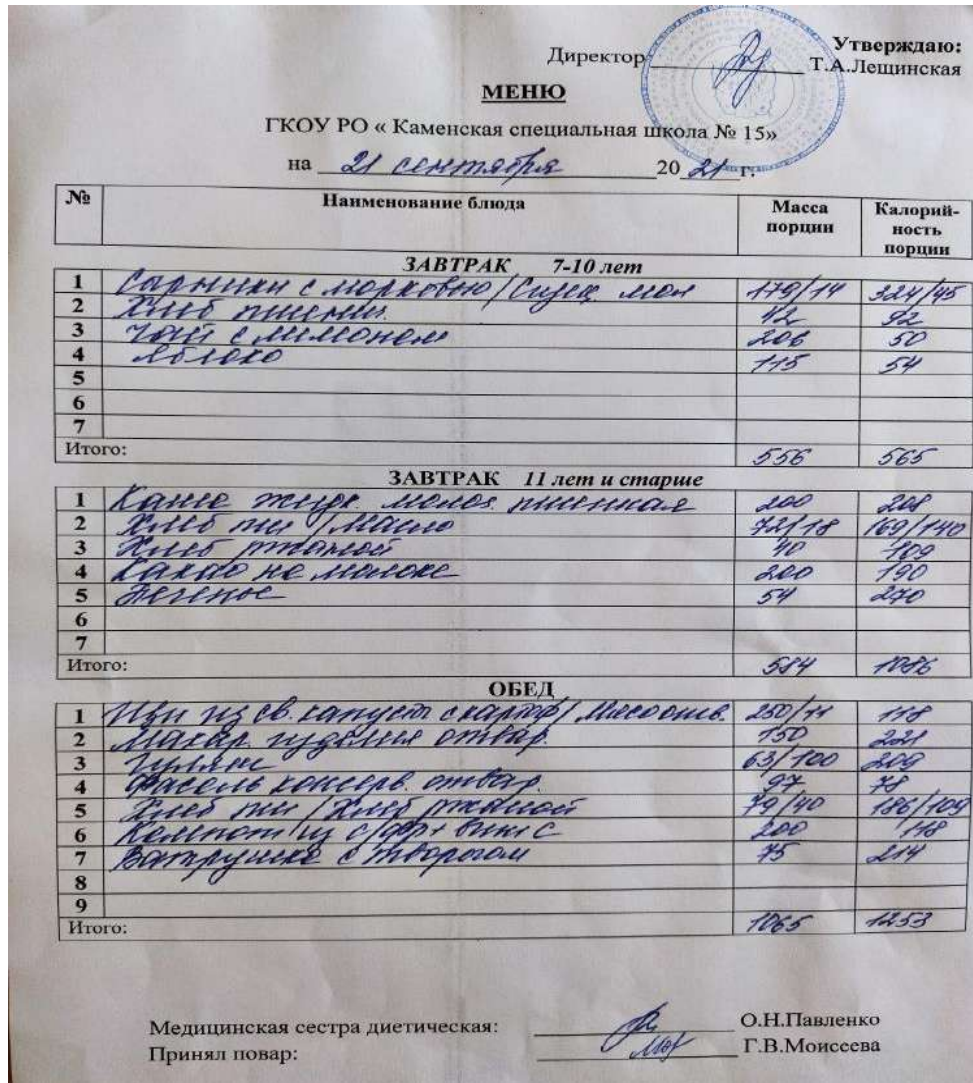 Утверждаю:
Директор Т.А.Лещинская
МЕНЮ
ГКОУ РО « Каменская специальная школа № 15»
на 21 сентября 20 21 г.
№ Наименование блюда Масса порции Калорий-ность порции
ЗАВТРАК 7-10 лет
1 Сырники с морковью/Сгущ мол 179/14 324/45
2 Хлеб пшенич. 42 92
3 Чай с лимоном 206 50
4 Яблоко 115 54
5
6
7
Итого: 556 565
ЗАВТРАК 11 лет и старше
1 Каша жидк. молоч. пшенная 200 208
2 Хлеб пш /Масло 72/18 169/140
3 Хлеб ржаной 40 109
4 Какао на молоке 200 190
5 Печенье 54 270
6
7
Итого: 584 1086
ОБЕД
1 Щи из св. капуст с картоф/ Мясо отв. 250/11 118
2 Макар. изделия отвар. 150 221
3 Гуляш 63/100 209
4 Фасоль консерв. отвар. 97 78
5 Хлеб пш /Хлеб ржаной 79/40 186/109
6 Компот из с/фр+ вит С 200 118
7 Ватрушка с творогом 75 214
8
9
Итого: 1065 1253
Медицинская сестра диетическая: О.Н.Павленко
Принял повар: Г.В.Моисеева